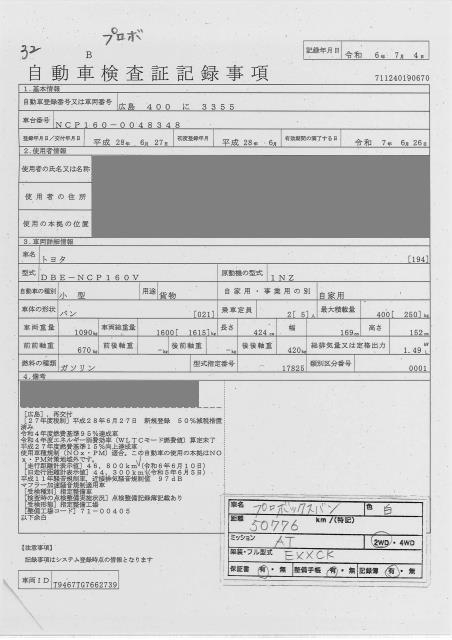 32
プロボ
B
記録年月日 令和 6年 7月 4日
自動車検査証記録事項
711240190670
1.基本情報
自動車登録番号又は車両番号 広島 400 に 3355
車台番号 NCP160-0048348
登録年月日/交付年月日 平成 28年 6月 27日 初度登録年月 平成 28年 6月 有効期間の満了する日 令和 7年 6月 26日
2.使用者情報
使用者の氏名又は名称
使用者の住所
使用の本拠の位置
3.車両詳細情報
車名 トヨタ [194]
型式 DBE-NCP160V 原動機の型式 1NZ
自動車の種別 小型 用途 貨物 自家用・事業用の別 自家用
車体の形状 バン [021] 乗車定員 2[ 5]人 最大積載量 400[ 250]kg
車両重量 1090kg 車両総重量 1600[ 1615]kg 長さ 424cm 幅 169cm 高さ 152cm
前前軸重 670kg 前後軸重 -kg 後前軸重 -kg 後後軸重 420kg 総排気量又は定格出力 1.49 kW L
燃料の種類 ガソリン 型式指定番号 17825 類別区分番号 0001
4.備考
[広島],再交付
[27年度税制]平成28年6月27日 新規登録 50%減税措置
済み
令和4年度燃費基準95%達成車
令和4年度エネルギー消費効率(WLTCモード燃費値)算定未了
平成27年度燃費基準15%向上達成車
使用車種規制(NOx・PM)適合,この自動車の使用の本拠はNO
x・PM対策地域外です。
[走行距離計表示値]46,800km(令和6年6月10日)
[旧走行距離計表示値]44,300km(令和5年6月5日)
平成11年騒音規制車,近接排気騒音規制値 97dB
マフラー加速騒音規制適用車
[受検種別]指定整備車
[検査時の点検整備実施状況]点検整備記録簿記載あり
[受検形態]指定整備工場
[整備工場コード]71-00405
以下余白
車名 プロボックスバン 色 白
距離 50776 km/(特記)
ミッション AT 2WD・4WD
架装・フル型式 EXXCK
保証書 有・無 整備手帳 有・無 記録簿 有・無
【注意事項】
記録事項はシステム登録時点の情報となります
車両ID T9467TG7662739